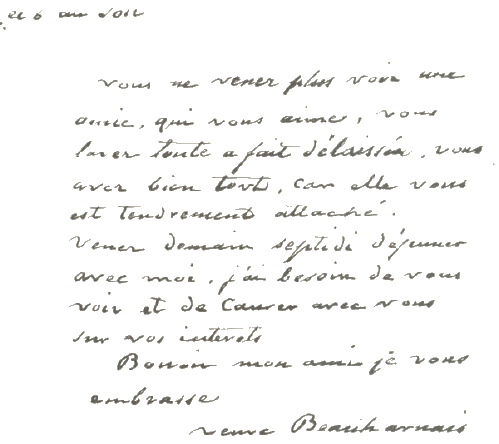 ce 6 au soir
vous ne vener plus voir une
amie, qui vous aime, vous
laver toute a fait délaissée, vous
aver bien tort, car elle vous
est tendrement attaché.
Vener demain septidi déjeuner
avec moi, j'ai besoin de vous
voir et de causer avec vous
sur vos interets
Bonsoir mon ami je vous
embrasse
veuve Beauharnais